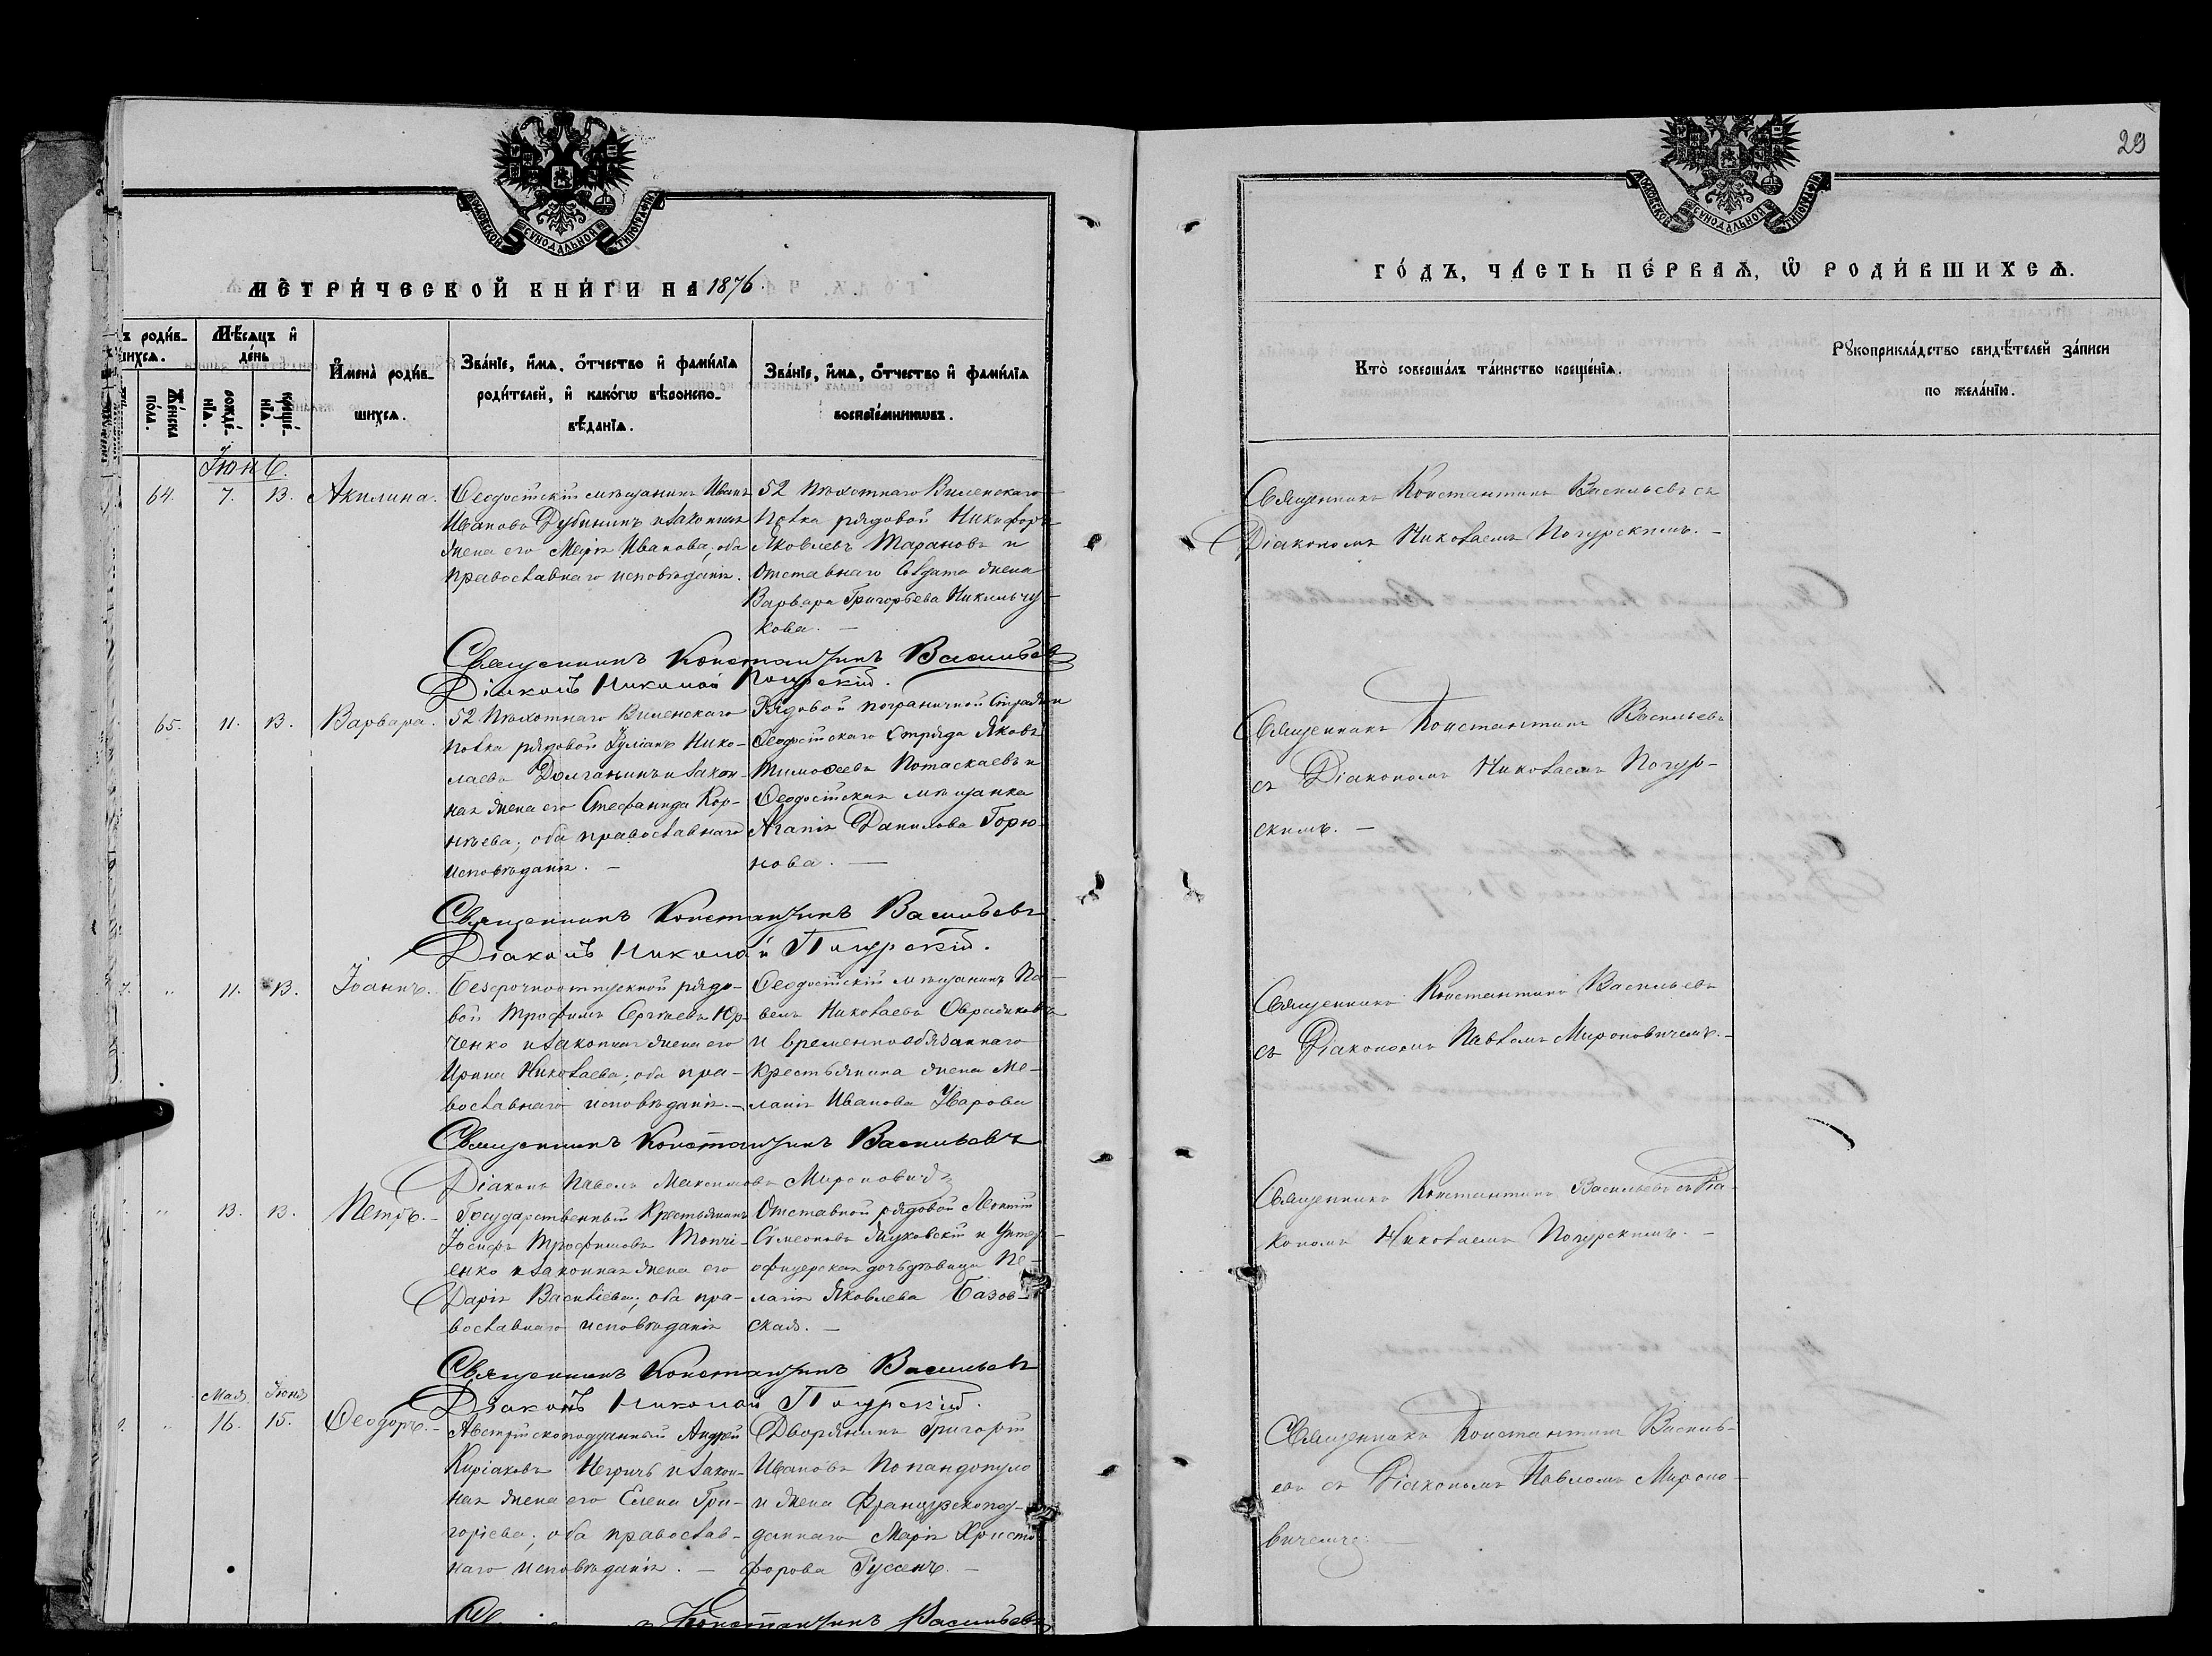 29
МОСКОВСКОЙ СѴНОДАЛЬНОЙ ТИПОГРАФІИ
МОСКОВСКОЙ СѴНОДАЛЬНОЙ ТИПОГРАФІИ
МЕТРИ́ЧЕСКОЙ КНИ́ГИ НА 1876
ГО́ДЪ, ЧА́СТЬ ПЕ́РВАѦ, Ѡ҆ РОДИ́ВШИХСѦ.
ъ роди́в-
шихсѧ.
Же́нска
по́ла.
Мѣ́сѧцъ и҆
де́нь
рожде́-
нїѧ.
креще́-
нїѧ.
И҆мена̀ роди́в-
шихсѧ.
Зва́нїе, и҆́мѧ, ѻ҆́тчество и҆ фами́лїѧ
роди́телей, и҆ како́гѡ вѣроиспо-
вѣ́данїѧ.
Зва́нїе, и҆́мѧ, ѻ҆́тчество и҆ фами́лїѧ
воспрїе́мниковъ.
Кто̀ соверша́лъ та́инство креще́нїѧ.
Рꙋкоприкла́дство свидѣ́телей за́писи
по жела́нїю.
Іюнь.
64. 7. 13. Акилина.
Ѳеодосійскій мѣщанинъ Иванъ
Ивановъ Дубининъ и законная
жена его Марія Иванова; оба
православнаго исповѣданія.
52 Пѣхотнаго Виленскаго
полка рядовой Никифоръ
Яковлевъ Тарановъ и
Отставнаго Солдата жена
Варвара Григорьева Никильчу-
кова. —
Священникъ Константинъ Васильевъ съ
Діакономъ Николаемъ Погурскимъ. —
Священникъ Константинъ Васильевъ
Діаконъ Николай Погурскій.
65. 11. 13. Варвара.
52 Пѣхотнаго Виленскаго
полка рядовой Іуліанъ Нико-
лаевъ Долганинъ и закон-
ная жена его Стефанида Кор-
нѣева; оба православнаго
исповѣданія. —
Рядовой пограничной Стражи
Ѳеодосійскаго Отряда Яковъ
Тимоѳеевъ Потаскаевъ и
Ѳеодосійская мѣщанка
Агапія Данилова Горю-
нова. —
Священникъ Константинъ Васильевъ
съ Діакономъ Николаемъ Погур-
скимъ. —
Священникъ Константинъ Васильевъ
Діаконъ Николай Погурскій.
" 11. 13. Іоаннъ.
Безсрочноотпускной рядо-
вой Трофимъ Сергѣевъ Юр-
ченко и законная жена его
Ирина Николаева; оба пра-
вославнаго исповѣданія. —
Ѳеодосійскій мѣщанинъ Па-
велъ Николаевъ
и временнообязаннаго
крестьянина жена Ме-
ланія Иванова Уварова
Священникъ Константинъ Васильевъ
съ Діакономъ Павломъ Мироновичемъ. —
Священникъ Константинъ Васильевъ
Діаконъ Павелъ Максимовъ Мироновичъ
" 13. 13. Петръ. —
Государственный Крестьянинъ
Іосифъ Трофимовъ Топчі-
енко и законная жена его
Дарія Василіева; оба пра-
вославнаго исповѣданія
Отставной рядовой Леонтій
Симеоновъ Жуковскій и Унтер-
офицерская дочь дѣвица Пе-
лагія Яковлева Базов-
ская. —
Священникъ Константинъ Васильевъ съ Діа-
кономъ Николаемъ Погурскимъ. —
Священникъ Константинъ Васильевъ
Діаконъ Николай Погурскій.
Мая Іюня
" 16. 15. Ѳеодоръ. —
Австрійскоподданный Андрей
Киріаковъ Негричъ и закон-
ная жена его Елена Гри-
горіева; оба православ-
наго исповѣданія. —
Дворянинъ Григорій
Ивановъ Попандопуло
и жена Французскопод-
даннаго Марія Христо-
форова Руссенъ. —
Священникъ Константинъ Василь-
евъ съ Діакономъ Павломъ Мироно-
вичемъ. —
Константинъ Васильевъ